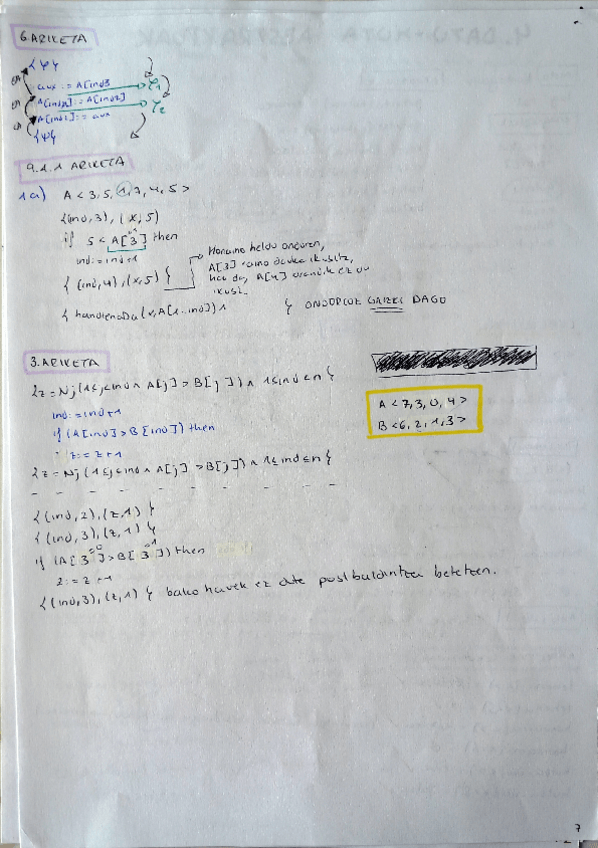 6.ARIKETA
{φ}
aux := A[ind]
A[ind1] := A[ind2]
φ1
A[ind2] := aux
φ2
{ψ}
4.1.1 ARIKETA
1a) A < 3, 5, 1, 7, 4, 5 >
{(ind, 3), (x, 5)
if 5 < A[3] then
ind := ind + 1
{(ind, 4), (x, 5)}
Honaino heldu
A[3] daude ikusita,
A[4] oraindik ez du
ikusi.
{handienaDa(x, A[1..ind])} } ONDORIOZ GAIZKI DAGO
3.ARIKETA
{z = Nj(1≤j≤ind ∧ A[j] > B[j]) ∧ 1≤ind≤n}
ind := ind+1
if (A[ind] > B[ind]) then
z := z+1
{z = Nj(1≤j≤ind ∧ A[j] > B[j]) ∧ 1≤ind≤n}
A < 7, 3, 0, 4 >
B < 6, 2, 1, 3 >
{(ind, 2), (z, 1)}
{(ind, 3), (z, 1)}
if (A[3] > B[3]) then
z := z+1
{(ind, 3), (z, 1)} balio hauek ez dute postbaldintza betetzen.
7